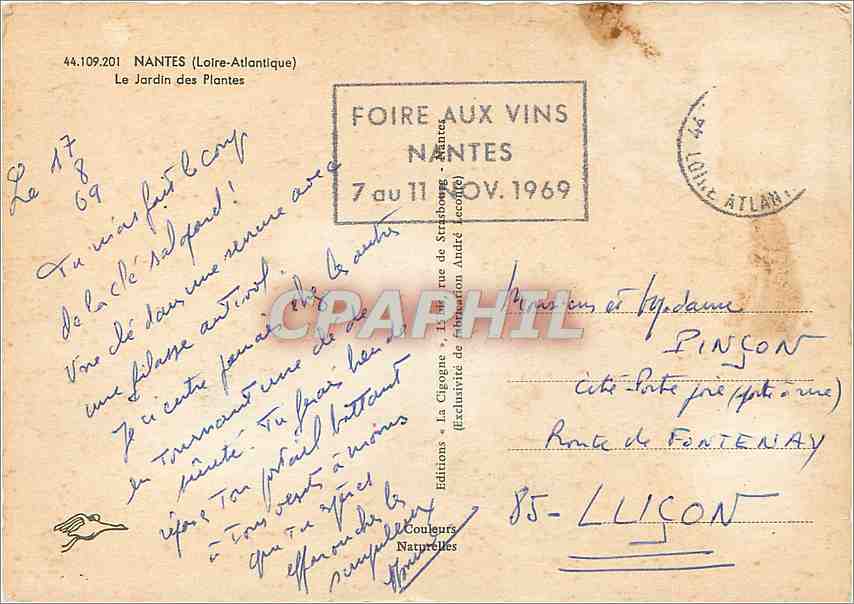 44.109.201 NANTES (Loire-Atlantique)
Le Jardin des Plantes
FOIRE AUX VINS
NANTES
7 au 11 NOV. 1969
44 LOIRE ATLAN
Le 17
8
69
Tu m'as fait le coup
de la clé salopard !
Une clé dans une serrure avec
une filasse antivol.
Je ci entre jamais chez les autres
en tournant une clé de
sûreté. Tu ferais bien de
ton portail battant
à tous vents à moins
que tu espères
effaroucher les
scrupuleux
Editions « La Cigogne », 15 bis, rue de Strasbourg - Nantes
(Exclusivité de fabrication André Leconte)
Couleurs
Naturelles
CPAPHIL
Monsieur et Madame
PINÇON
Cité Porte joie (porte à rue)
Route de FONTENAY
85 - LUÇON